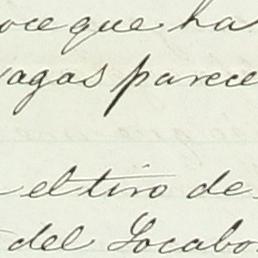 oce que ha
vagas parece
el tiro de
del Socabo